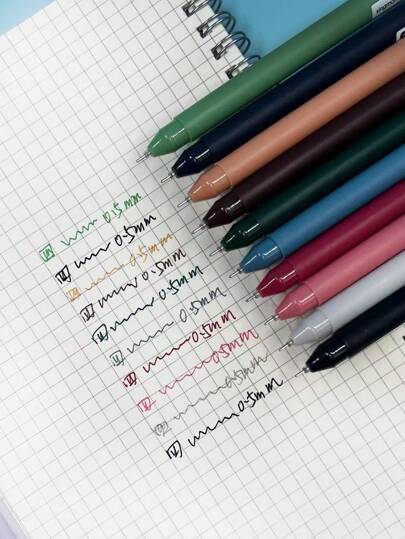 0.5mm
0.5mm
0.5mm
0.5mm
0.5mm
0.5mm
0.5mm
0.5mm
0.5mm
0.5mm